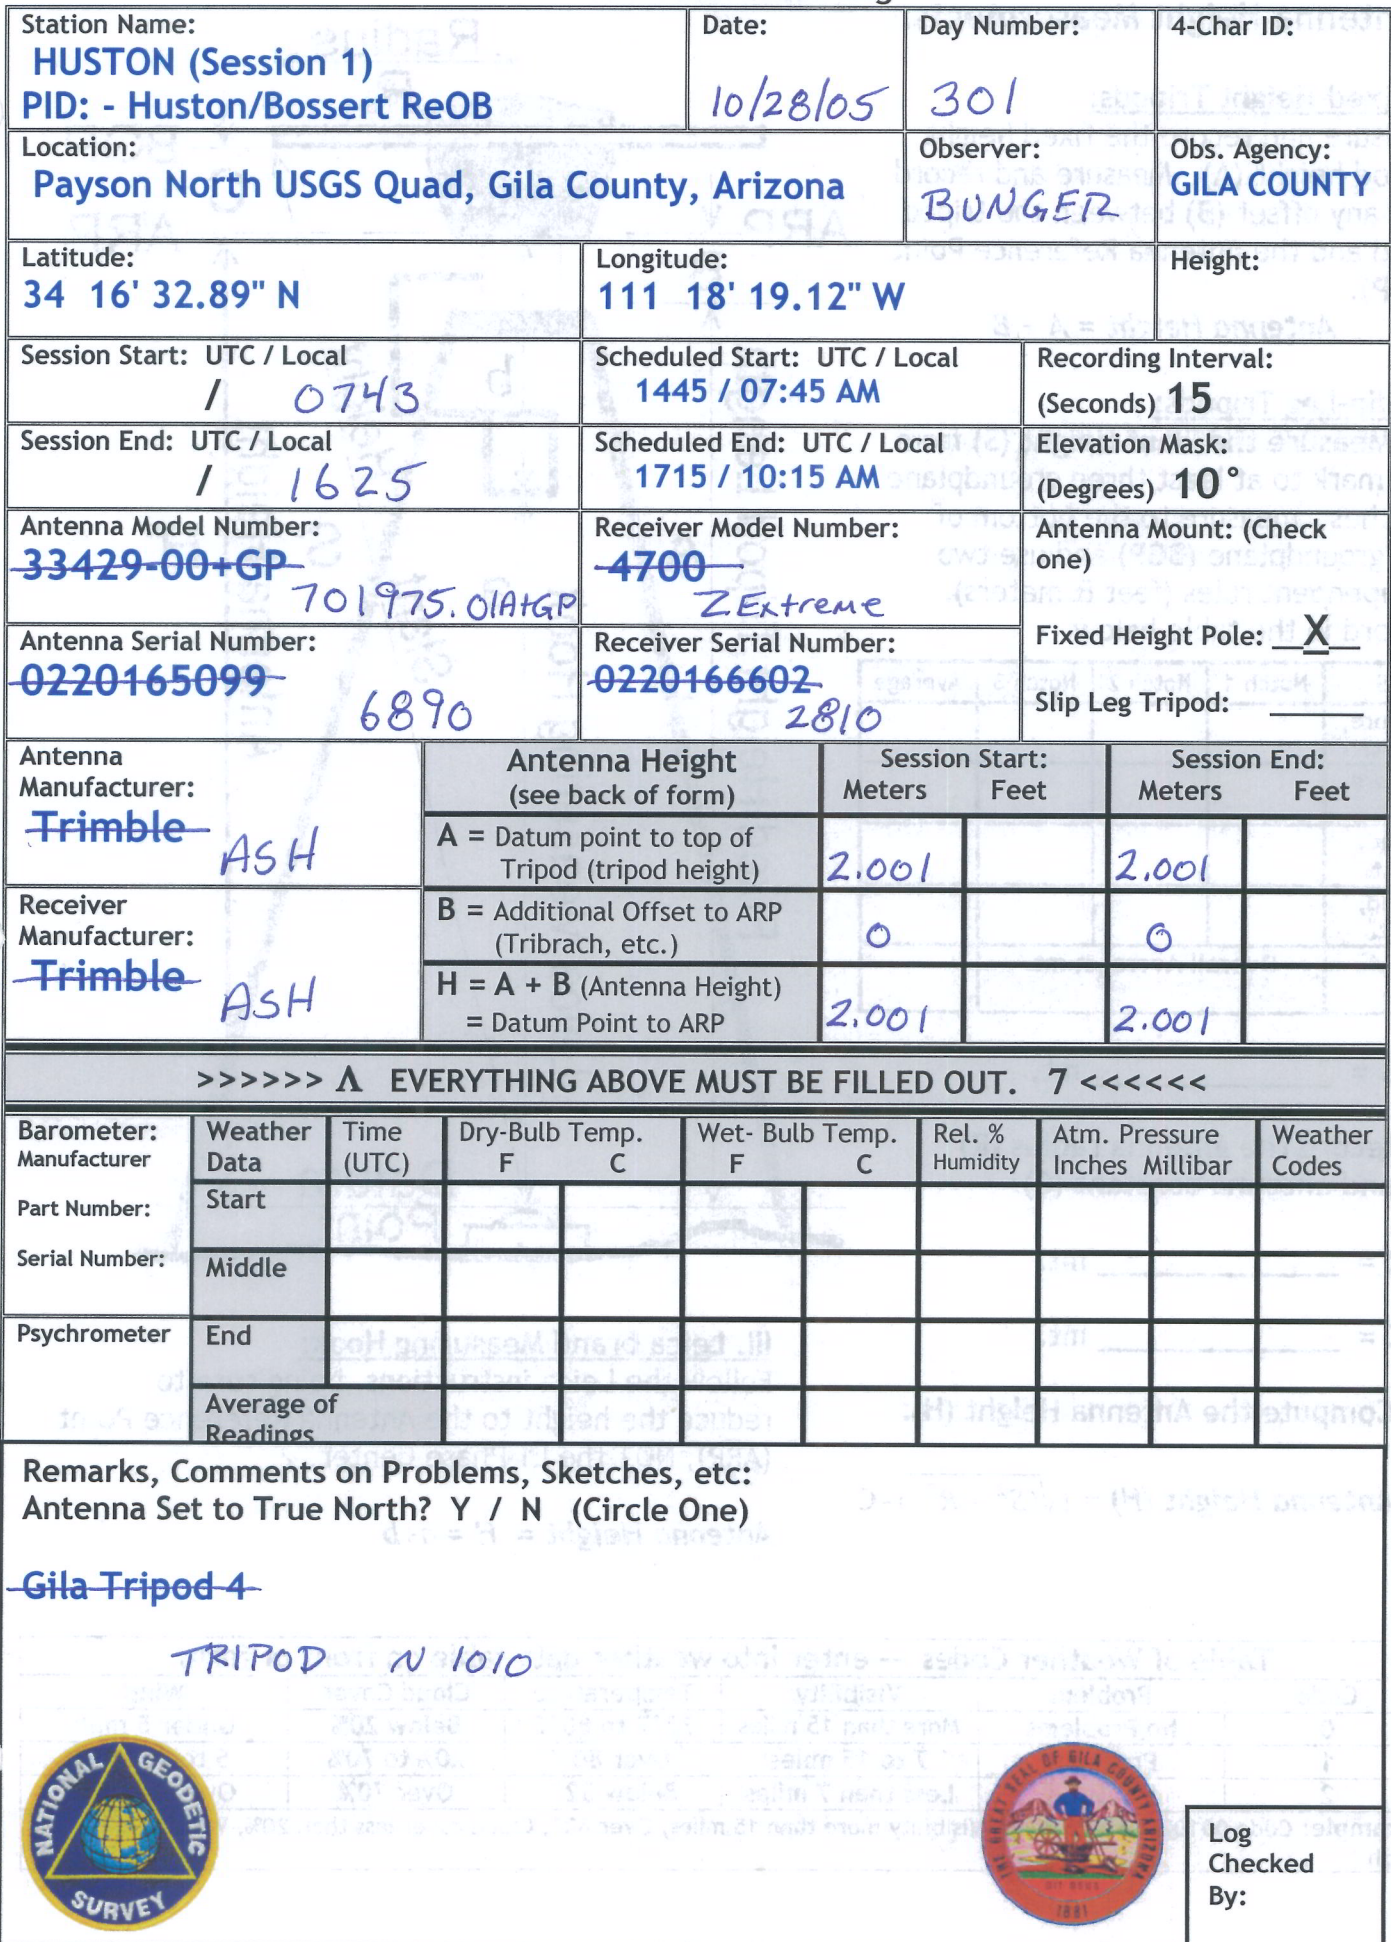 Station Name:
HUSTON (Session 1)
PID: - Huston/Bossert ReOB
Date:
10/28/05
Day Number:
301
4-Char ID:
Location:
Payson North USGS Quad, Gila County, Arizona
Observer:
BUNGER
Obs. Agency:
GILA COUNTY
Latitude:
34 16' 32.89" N
Longitude:
111 18' 19.12" W
Height:
Session Start: UTC / Local
/ 0743
Scheduled Start: UTC / Local
1445 / 07:45 AM
Recording Interval:
(Seconds) 15
Session End: UTC / Local
/ 1625
Scheduled End: UTC / Local
1715 / 10:15 AM
Elevation Mask:
(Degrees) 10°
Antenna Model Number:
33429-00+GP
701975.01A+GP
Receiver Model Number:
4700
ZExtreme
Antenna Mount: (Check
one)
Fixed Height Pole: __X__
Slip Leg Tripod: ______
Antenna Serial Number:
0220165099
6890
Receiver Serial Number:
0220166602
2810
Antenna
Manufacturer:
Trimble
ASH
Antenna Height
(see back of form)
Session Start:
Meters Feet
Session End:
Meters Feet
A = Datum point to top of
Tripod (tripod height)
2.001 2.001
Receiver
Manufacturer:
Trimble
ASH
B = Additional Offset to ARP
(Tribrach, etc.)
0 0
H = A + B (Antenna Height)
= Datum Point to ARP
2.001 2.001
>>>>>> Λ EVERYTHING ABOVE MUST BE FILLED OUT. 7 <<<<<<
Barometer:
Manufacturer
Part Number:
Serial Number:
Psychrometer
Weather
Data
Time
(UTC)
Dry-Bulb Temp.
F C
Wet- Bulb Temp.
F C
Rel. %
Humidity
Atm. Pressure
Inches Millibar
Weather
Codes
Start
Middle
End
Average of
Readings
Remarks, Comments on Problems, Sketches, etc:
Antenna Set to True North? Y / N (Circle One)
Gila Tripod 4
TRIPOD N1010
NATIONAL GEODETIC SURVEY
THE GREAT SEAL OF GILA COUNTY ARIZONA
1881
Log
Checked
By: